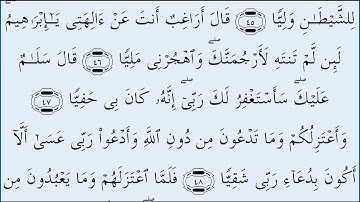 لِلشَّيْطَـٰنِ وَلِيًّا ﴿٤٥﴾ قَالَ أَرَاغِبٌ أَنتَ عَنْ ءَالِهَتِى يَـٰٓإِبْرَٰهِيمُ
لَئِن لَّمْ تَنتَهِ لَأَرْجُمَنَّكَ ۖ وَٱهْجُرْنِى مَلِيًّا ﴿٤٦﴾ قَالَ سَلَـٰمٌ
عَلَيْكَ ۖ سَأَسْتَغْفِرُ لَكَ رَبِّىٓ ۖ إِنَّهُۥ كَانَ بِى حَفِيًّا ﴿٤٧﴾
وَأَعْتَزِلُكُمْ وَمَا تَدْعُونَ مِن دُونِ ٱللَّهِ وَأَدْعُوا۟ رَبِّى عَسَىٰٓ أَلَّآ
أَكُونَ بِدُعَآءِ رَبِّى شَقِيًّا ﴿٤٨﴾ فَلَمَّا ٱعْتَزَلَهُمْ وَمَا يَعْبُدُونَ مِن